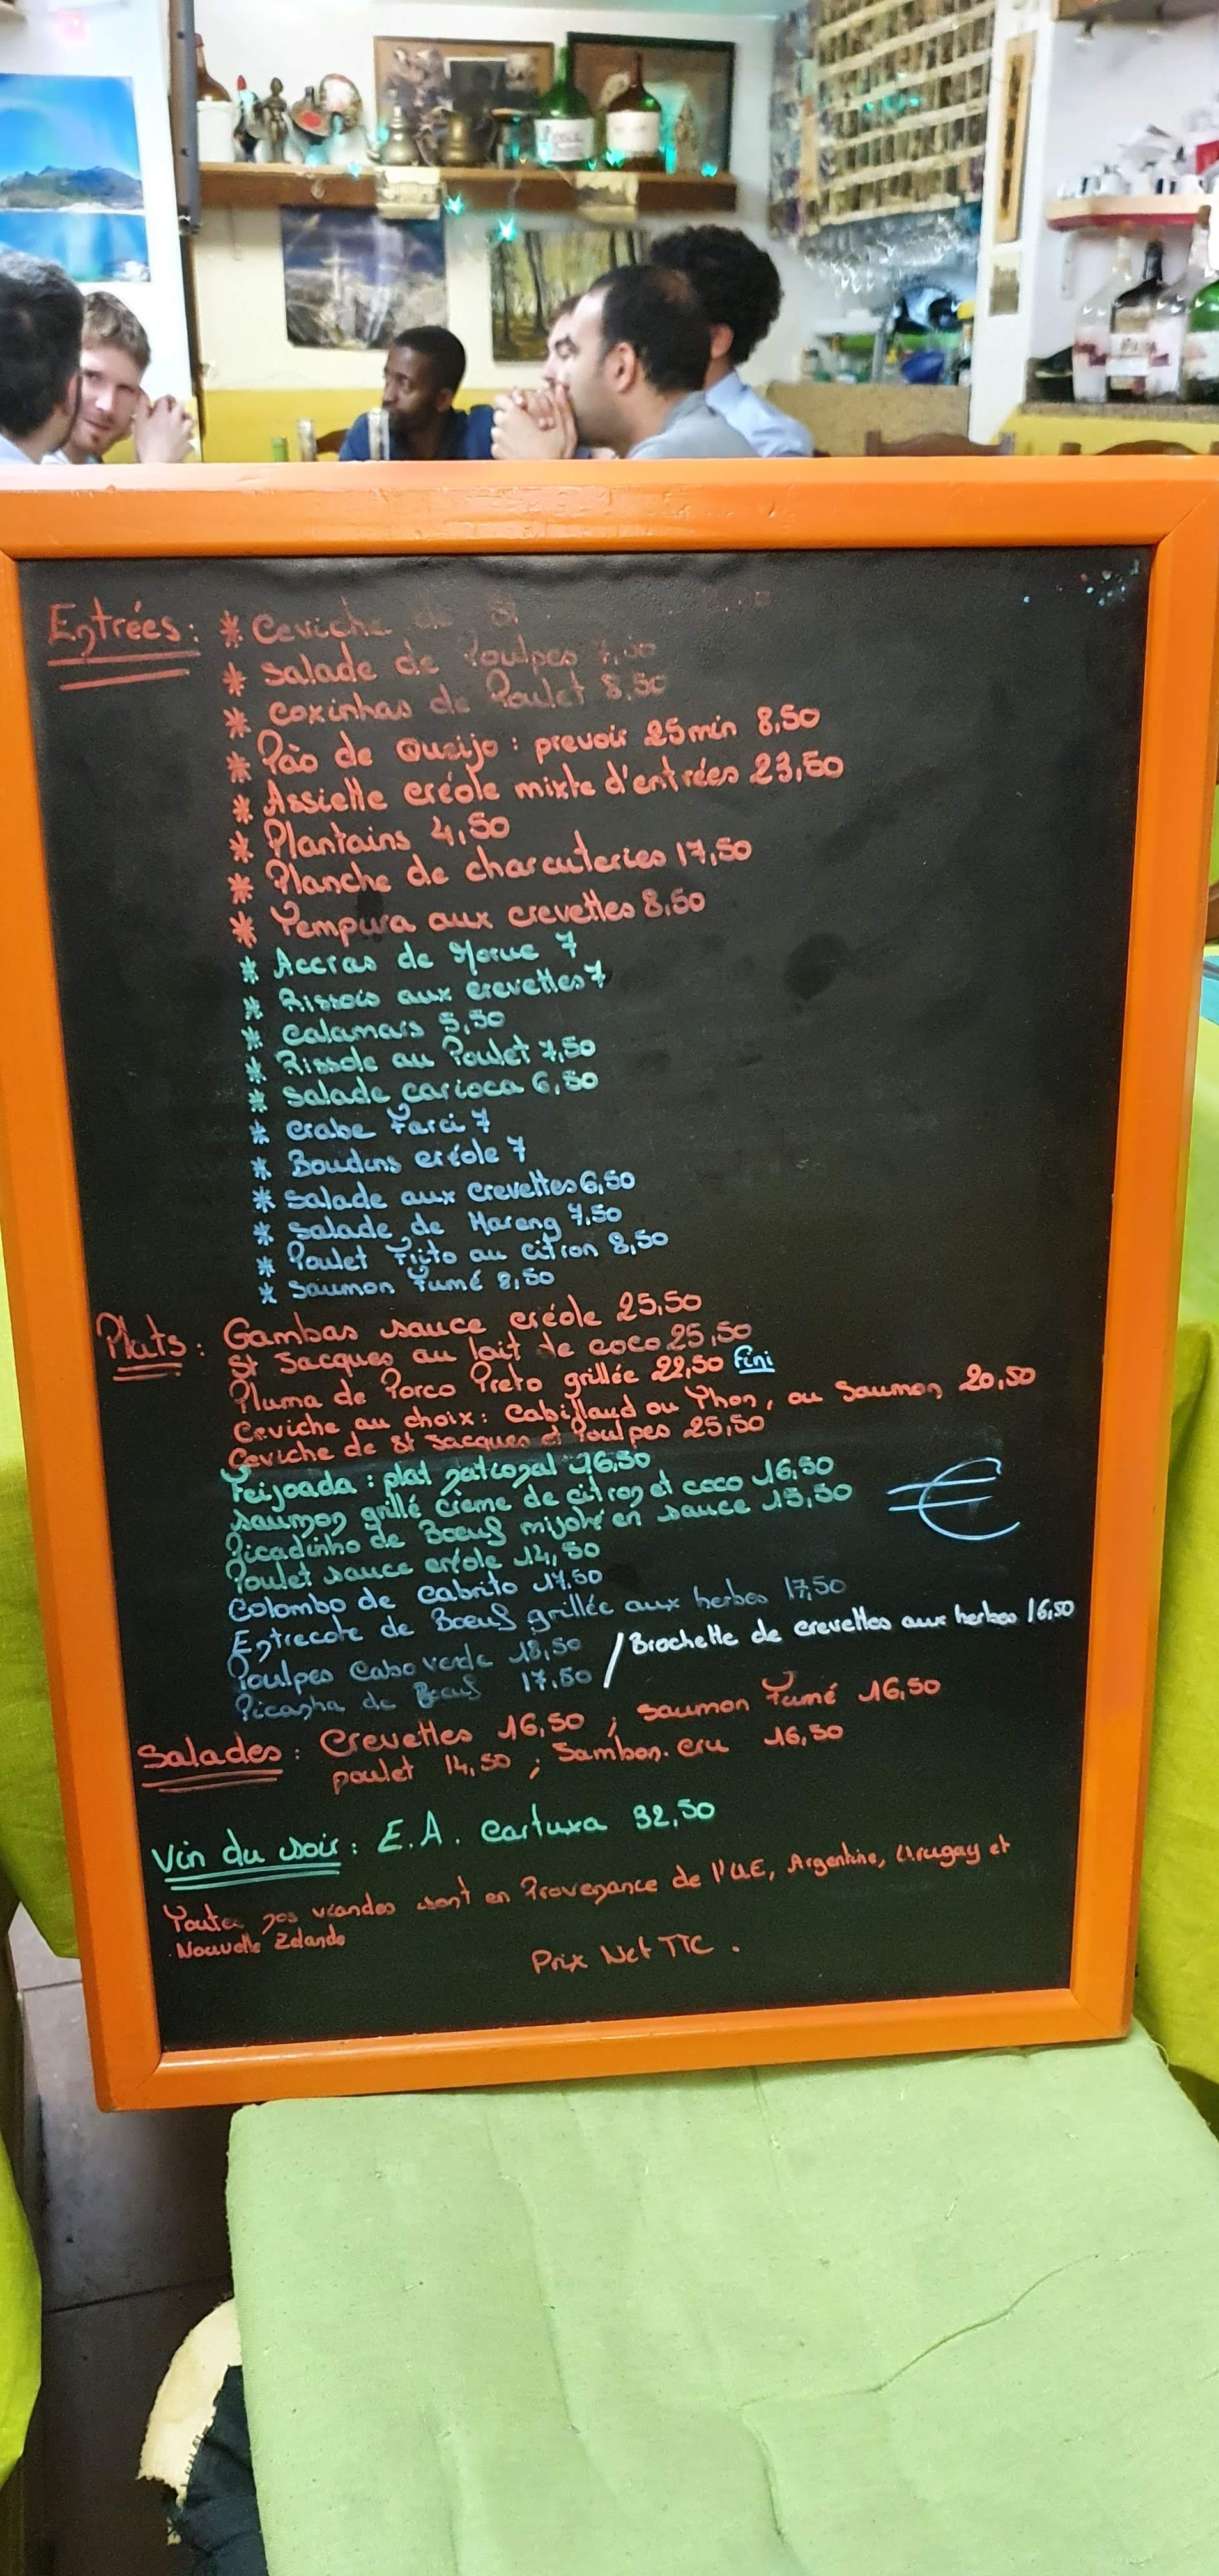 Entrées : * Ceviche de St
* Salade de Poulpes 7,50
* Coxinhas de Poulet 8,50
* Pão de Queijo : prevoir 25min 8,50
* Assiette créole mixte d'entrées 23,50
* Plantains 4,50
* Planche de charcuteries 17,50
* Tempura aux crevettes 8,50
* Accras de Morue 7
* Rissois aux crevettes 7
* Calamars 5,50
* Rissole au Poulet 7,50
* Salade carioca 6,50
* Crabe Farci 7
* Boudins créole 7
* Salade aux Crevettes 6,50
* Salade de Hareng 7,50
* Poulet Frito au citron 8,50
* Saumon Fumé 8,50
Plats : Gambas sauce créole 25,50
St Jacques au lait de coco 25,50
Pluma de Porco Preto grillée 22,50 Fini
Ceviche au choix : Cabillaud ou Thon, ou Saumon 20,50
Ceviche de St Jacques et Poulpes 25,50
Feijoada : plat national 16,50
Saumon grillé crème de citron et coco 16,50
Picadinho de Boeuf mijoté en sauce 15,50
€
Poulet sauce créole 14,50
Colombo de Cabrito 17,50
Entrecote de Boeuf grillée aux herbes 17,50
Poulpes Cabo verde 18,50 / Brochette de crevettes aux herbes 16,50
Picanha de Boeuf 17,50
Salades : Crevettes 16,50 ; Saumon Fumé 16,50
poulet 14,50 ; Jambon. cru 16,50
Vin du soir : E.A. Cartuxa 32,50
Toutes nos viandes sont en Provenance de l'UE, Argentine, Urugay et
Nouvelle Zelande
Prix Net TTC .